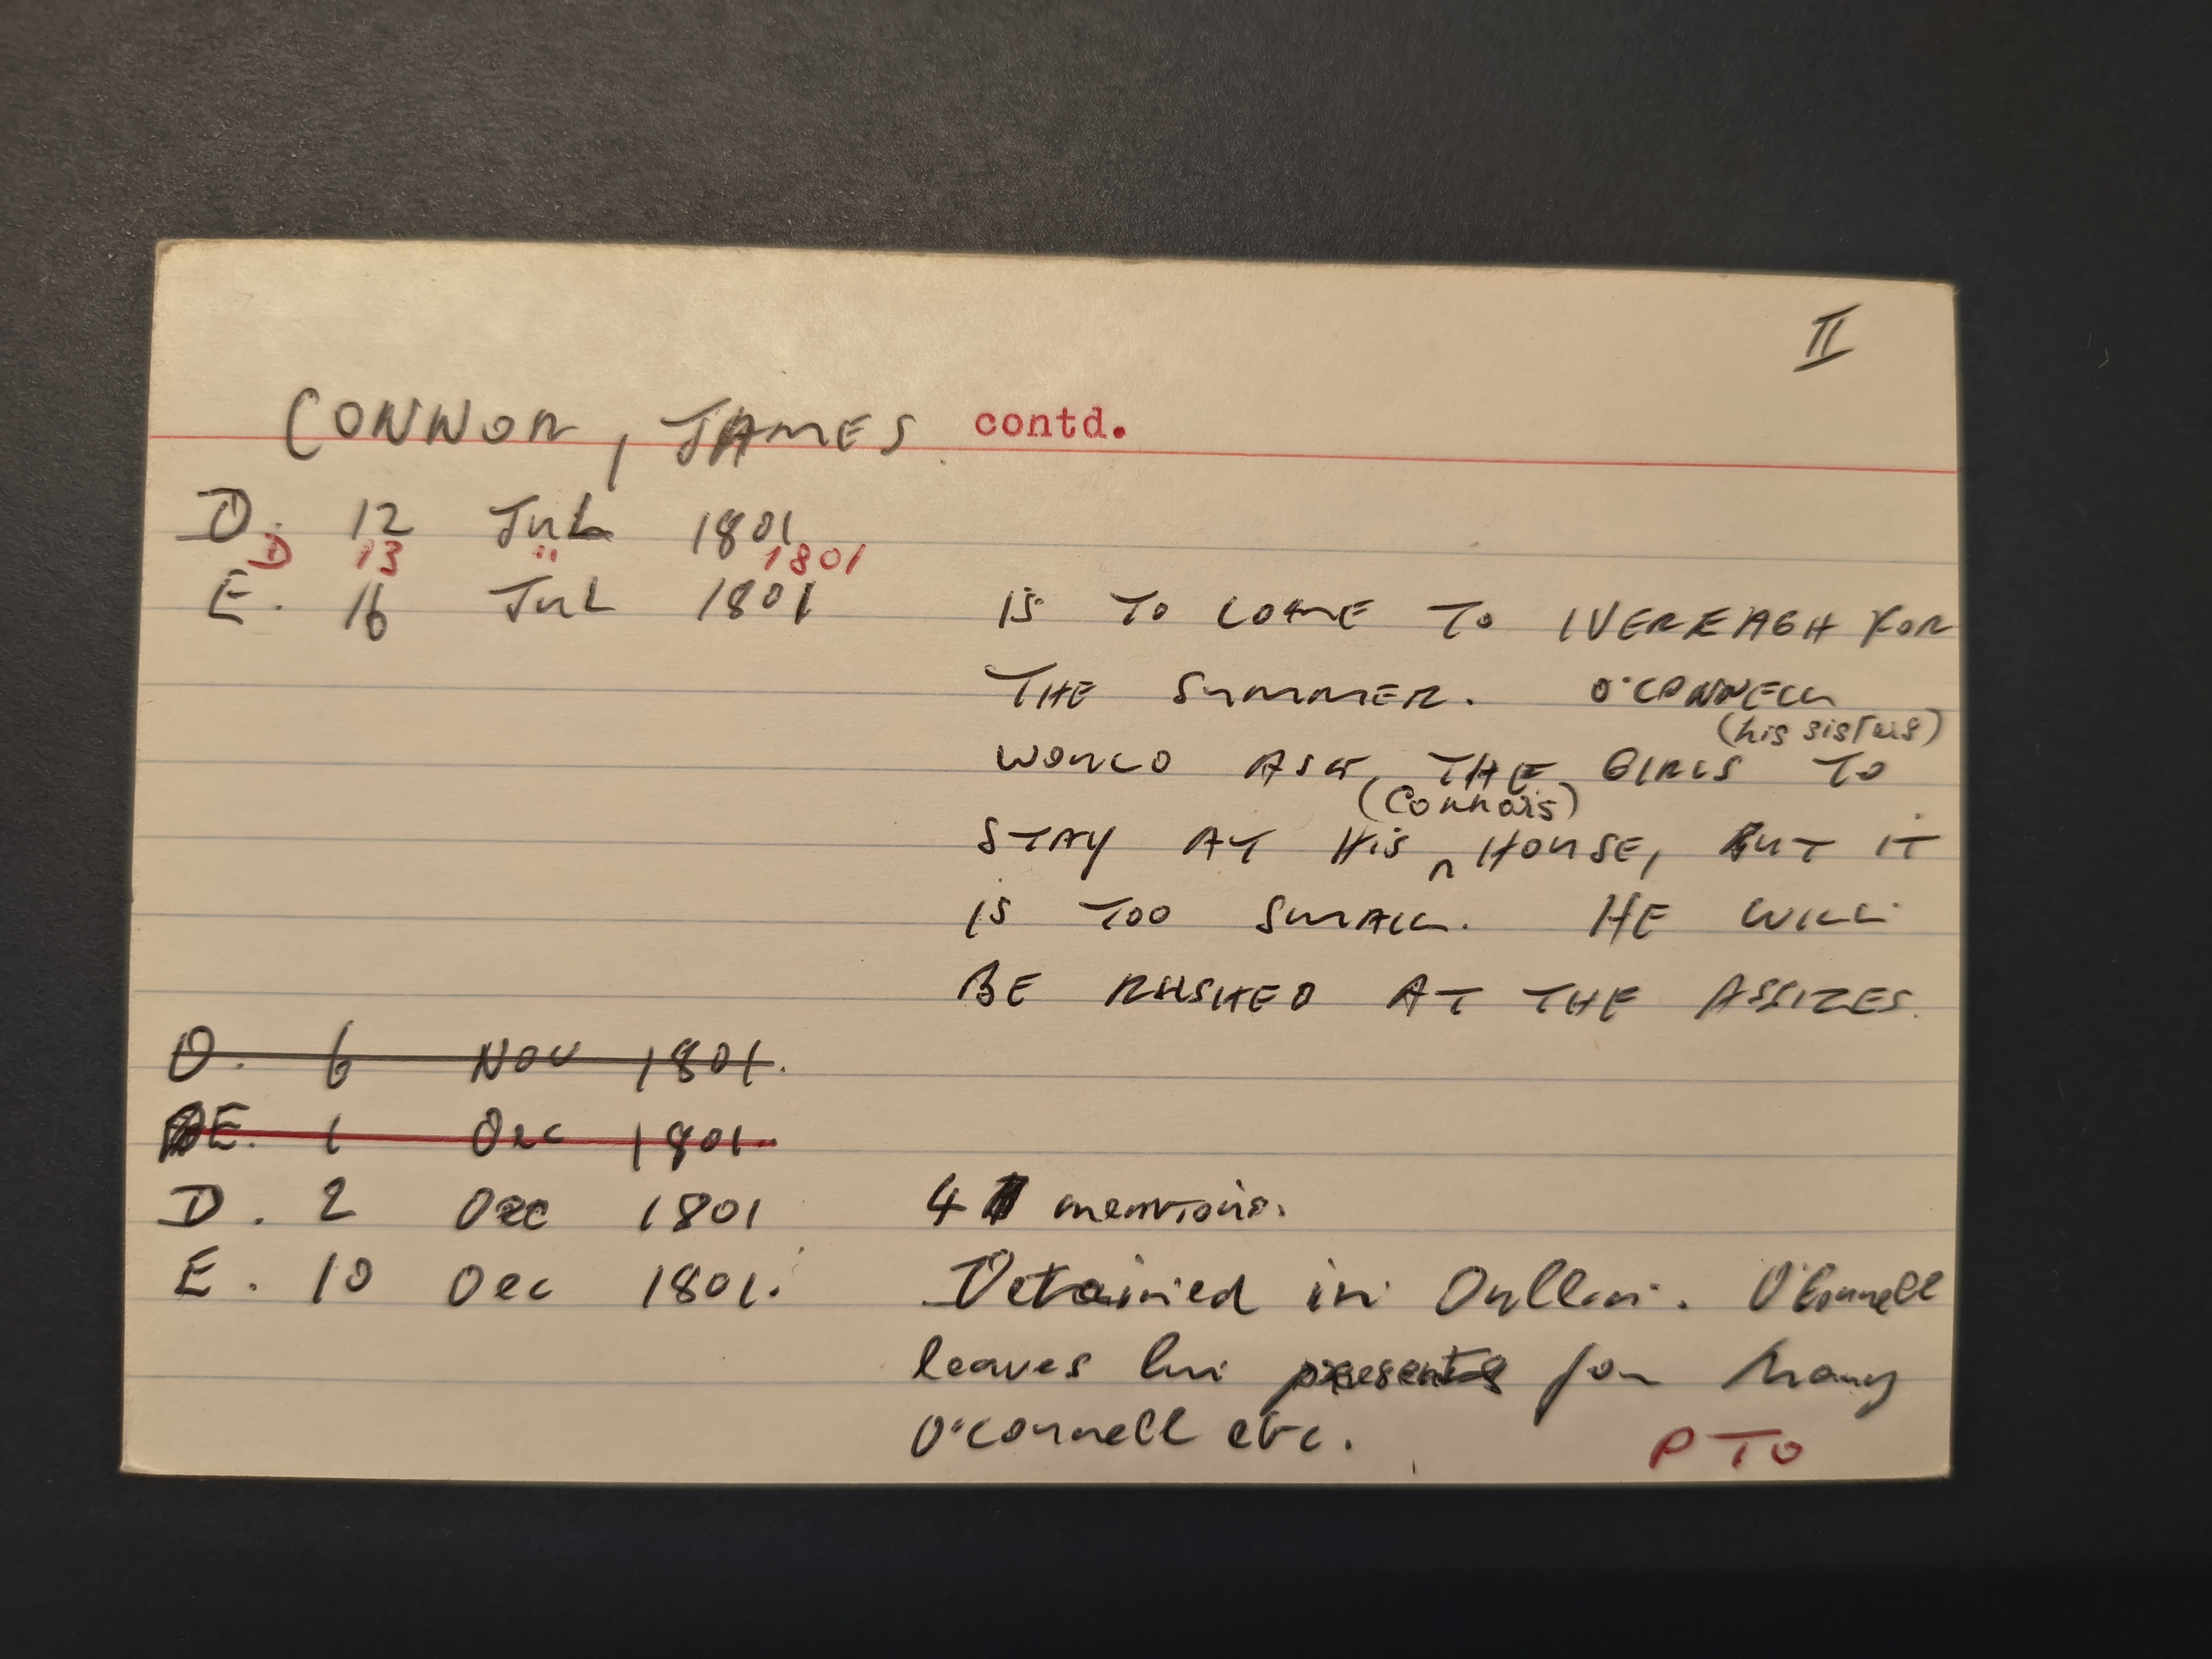 II
CONNOR, JAMES. contd.
D. 12 JUL 1801
D 13 " 1801
E. 16 JUL 1801 IS TO COME TO IVEREAGH FOR
THE SUMMER. O'CONNELL
(his sisters)
WOULD ASK THE GIRLS TO
(Connors)
STAY AT HIS HOUSE, BUT IT
IS TOO SMALL. HE WILL
BE RUSHED AT THE ASSIZES.
D. 6 NOV 1801.
E. 1 Dec 1801.
D. 2 Dec 1801 4 mentions.
E. 10 Dec 1801. Detained in Dublin. O'Connell
leaves his presents for Mary
O'Connell etc.
PTO